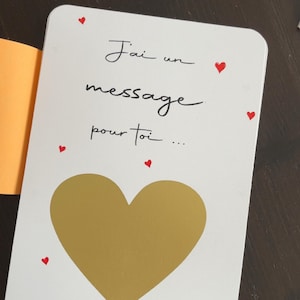 J'ai un
message
pour toi ...